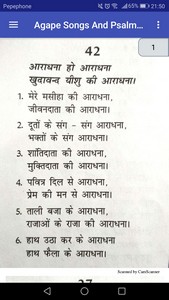 Pepephone
91%
21:50
Agape Songs And Psalm...
1
42
आराधना हो आराधना
खुदावन्द यीशु की आराधना।
1. मेरे मसीहा की आराधना,
जीवनदाता की आराधना।
2. दूतों के संग - संग आराधना,
भक्तों के संग आराधना।
3. शांतिदाता की आराधना,
मुक्तिदाता की आराधना।
4. पवित्र दिल से आराधना,
प्रेम की मन से आराधना।
5. ताली बजा के आराधना,
राजाओं के राजा की आराधना।
6. हाथ उठा कर के आराधना
हाथ फैला के आराधना।
Scanned by CamScanner